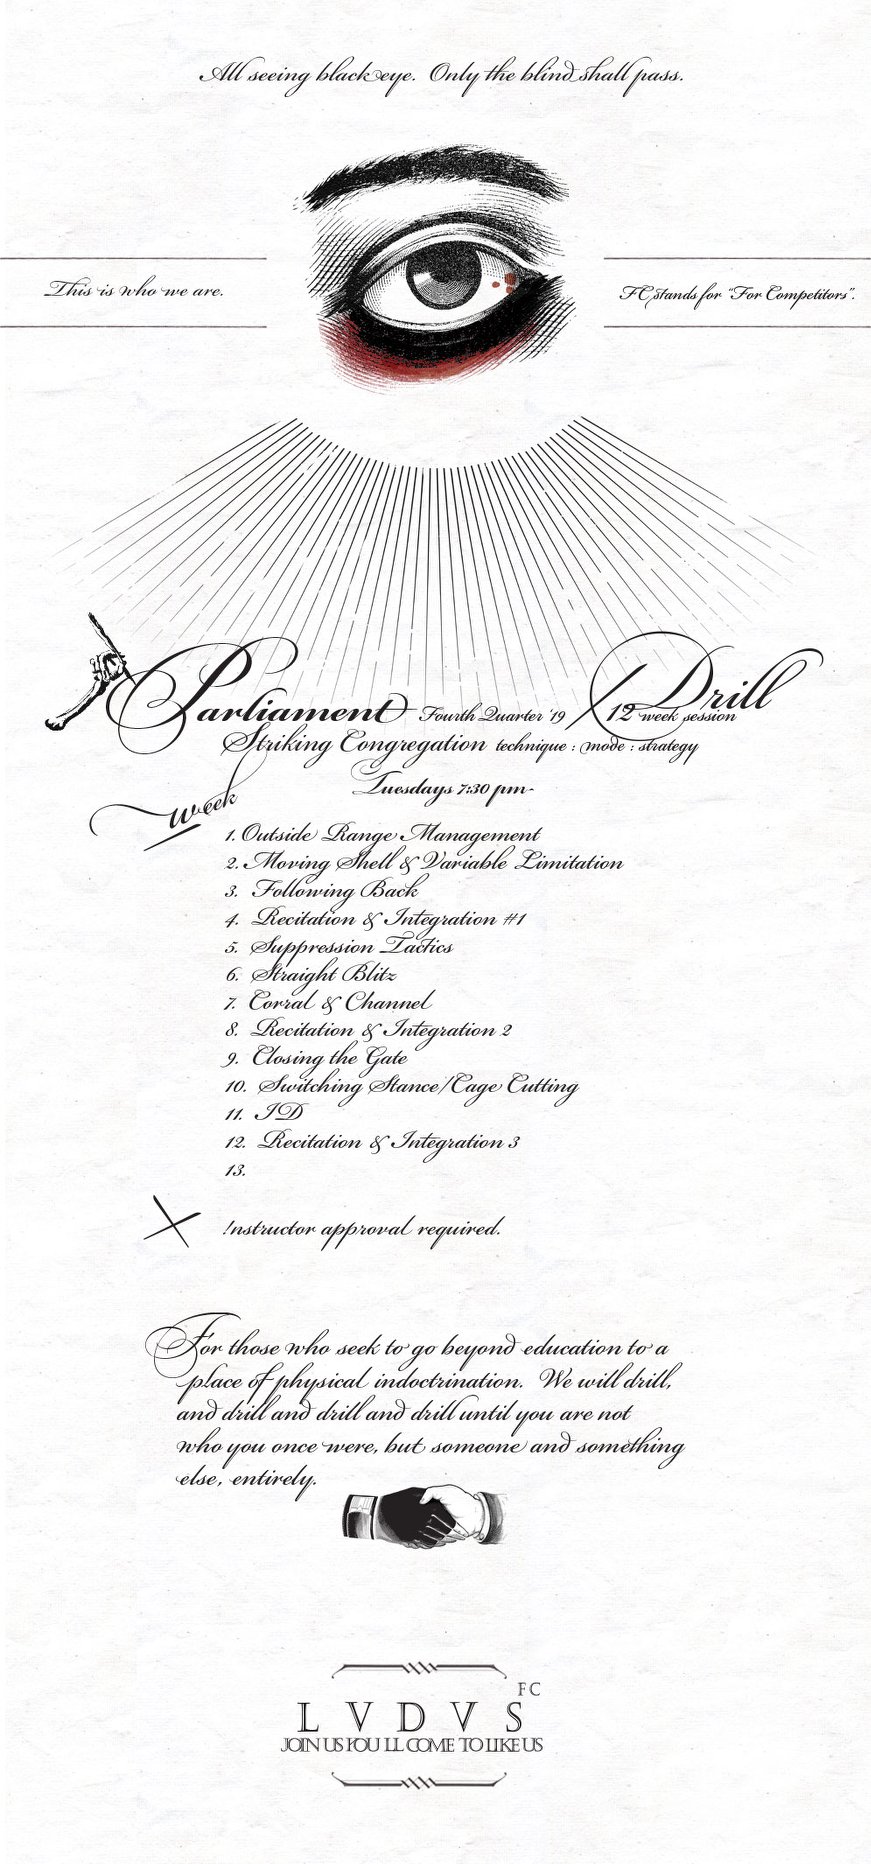 All seeing black eye. Only the blind shall pass.
This is who we are.
FC stands for "For Competitors".
Parliament Fourth Quarter '19 / Drill
12 week session
Striking Congregation technique : mode : strategy
Tuesdays 7:30 pm-
Week
1. Outside Range Management
2. Moving Shell & Variable Limitation
3. Following Back
4. Recitation & Integration #1
5. Suppression Tactics
6. Straight Blitz
7. Corral & Channel
8. Recitation & Integration 2
9. Closing the Gate
10. Switching Stance/Cage Cutting
11. ID
12. Recitation & Integration 3
13.
!nstructor approval required.
For those who seek to go beyond education to a
place of physical indoctrination. We will drill,
and drill and drill and drill until you are not
who you once were, but someone and something
else, entirely.
FC
LVDVS
JOIN US YOU LL COME TO LIKE US